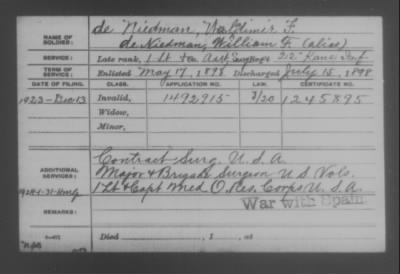 NAME OF SOLDIER: de Niedman, Waldimir F.
de Niedman, William F. (alias)
SERVICE: Late rank, 1 Lt & Asst Surg Regt 22" Kans Inf
TERM OF SERVICE: Enlisted May 17, 1898 Discharged July 15, 1898
DATE OF FILING. CLASS. APPLICATION NO. LAW. CERTIFICATE NO.
1923-Dec 13 Invalid, 1492915 3/20 1245895
Widow,
Minor,
ADDITIONAL SERVICES: Contract Surg. U.S.A.
Major & Brigade Surgeon U S Vols.
1 Lt & Capt Med O. Res. Corps U.S.A.
War with Spain
REMARKS:
Died , 1 , at